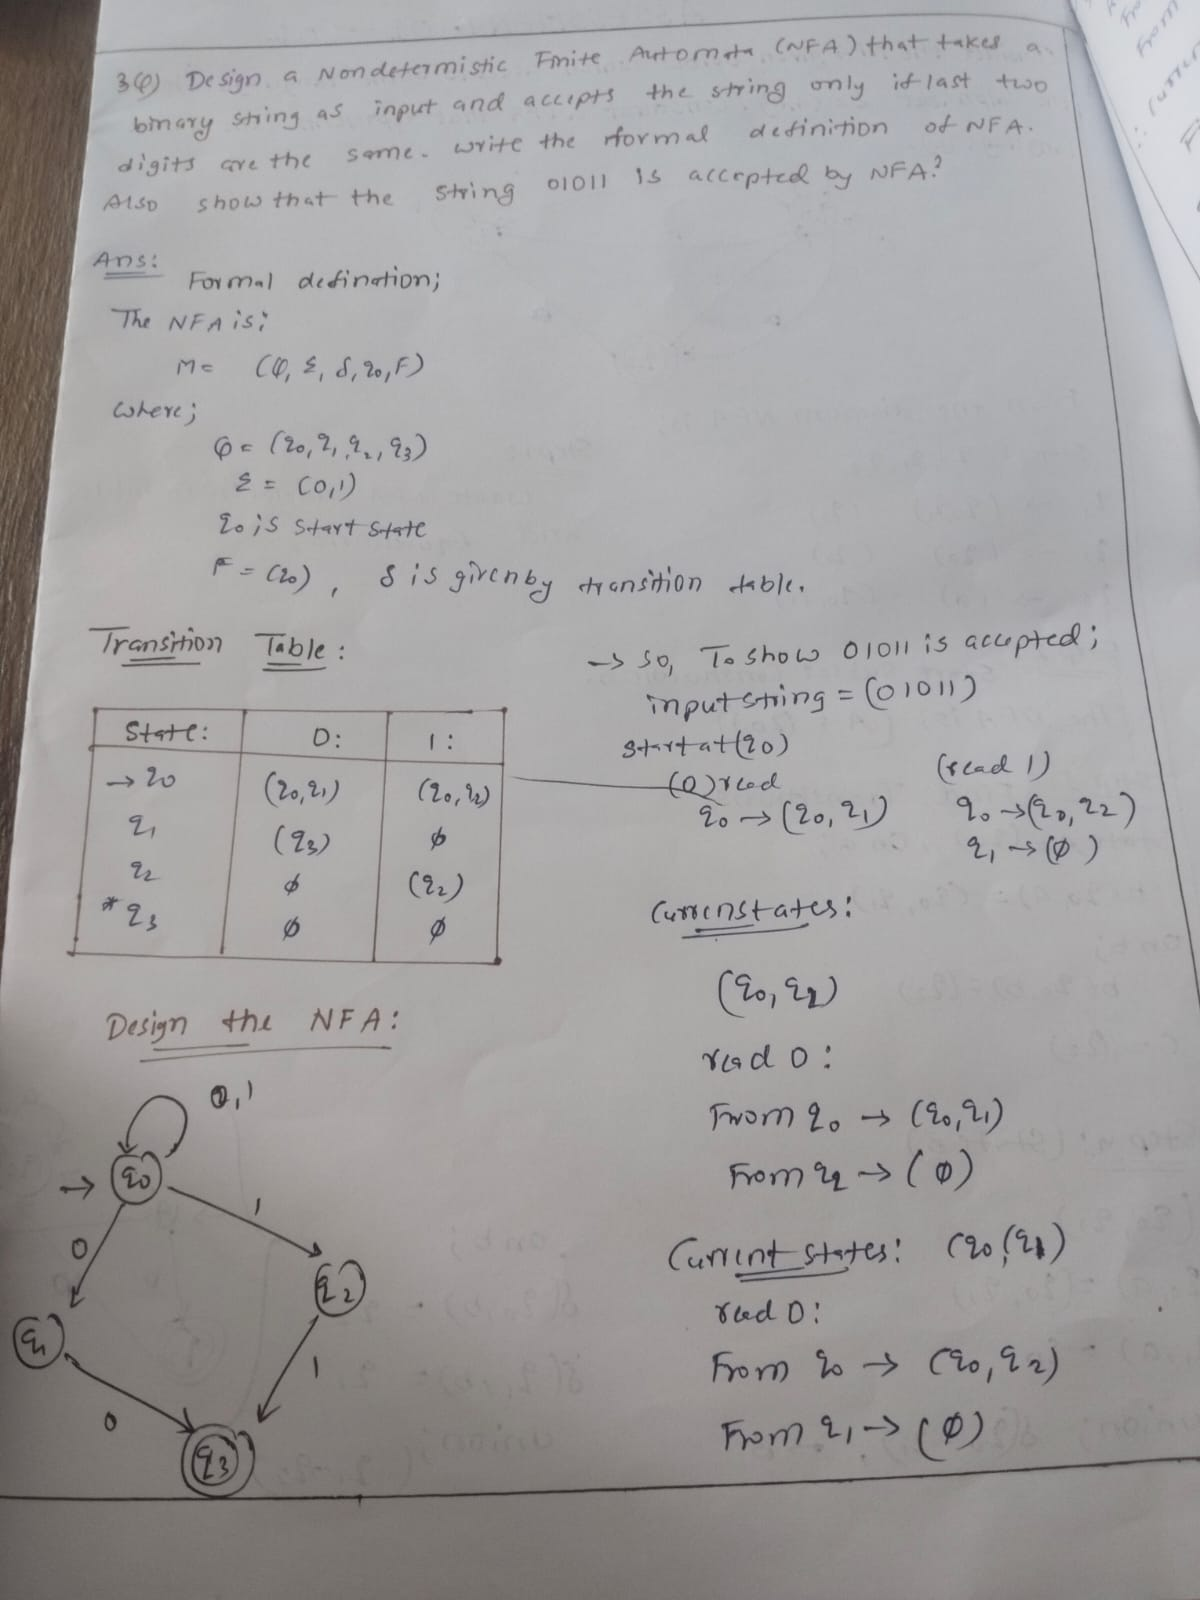 3Q) Design a Nondetermistic Finite Automata (NFA) that takes a
binary string as input and accepts the string only if last two
digits are the same. write the formal definition of NFA.
Also show that the string 01011 is accepted by NFA?
Ans:
Formal defination;
The NFA is;
M = (Q, Σ, δ, q0, F)
where;
Q = (q0, q1, q2, q3)
Σ = (0,1)
q0 is start state
F = (q0), δ is given by transition table.
Transition Table:
State: 0: 1:
→ q0 (q0,q1) (q0,q2)
q1 (q3) ϕ
q2 ϕ (q2)
* q3 ϕ ϕ
Design the NFA:
0,1
→ q0
0 1
q1 q2
0 1
q3
→ so, To show 01011 is accepted;
input string = (01011)
start at (q0)
(0) read
q0 → (q0, q1)
(read 1)
q0 → (q0, q2)
q1 → (ϕ)
Currenstates:
(q0, q2)
read 0:
From q0 → (q0,q1)
From q2 → (ϕ)
Current states: (q0,(q1)
read 0:
From q0 → (q0, q2)
From q1 → (ϕ)